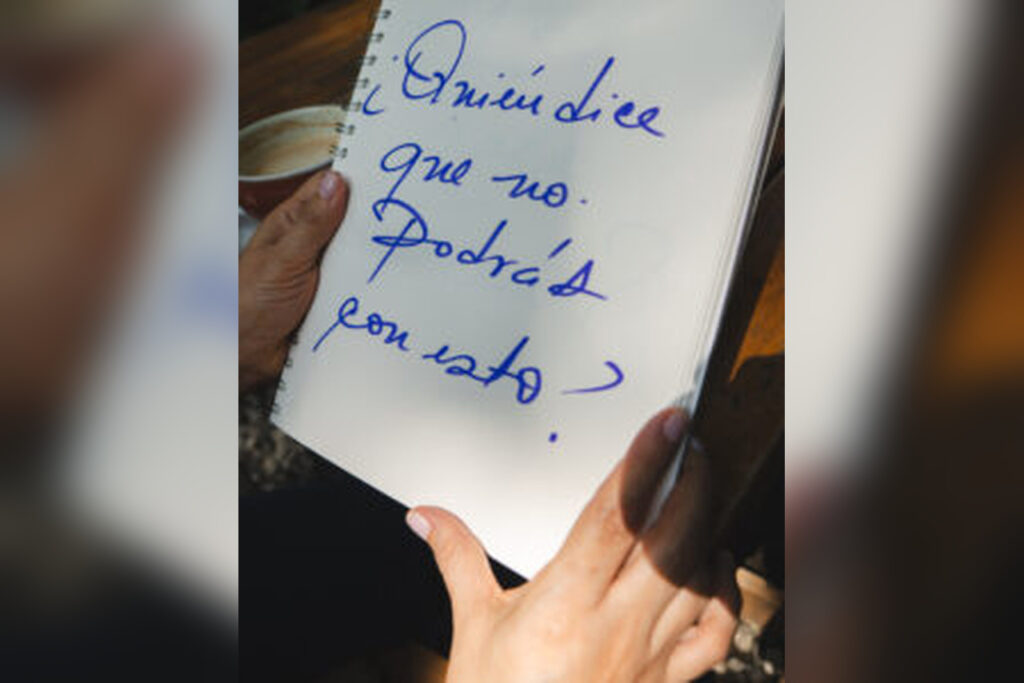 ¿Quién dice
que no.
Podrás
con esto?